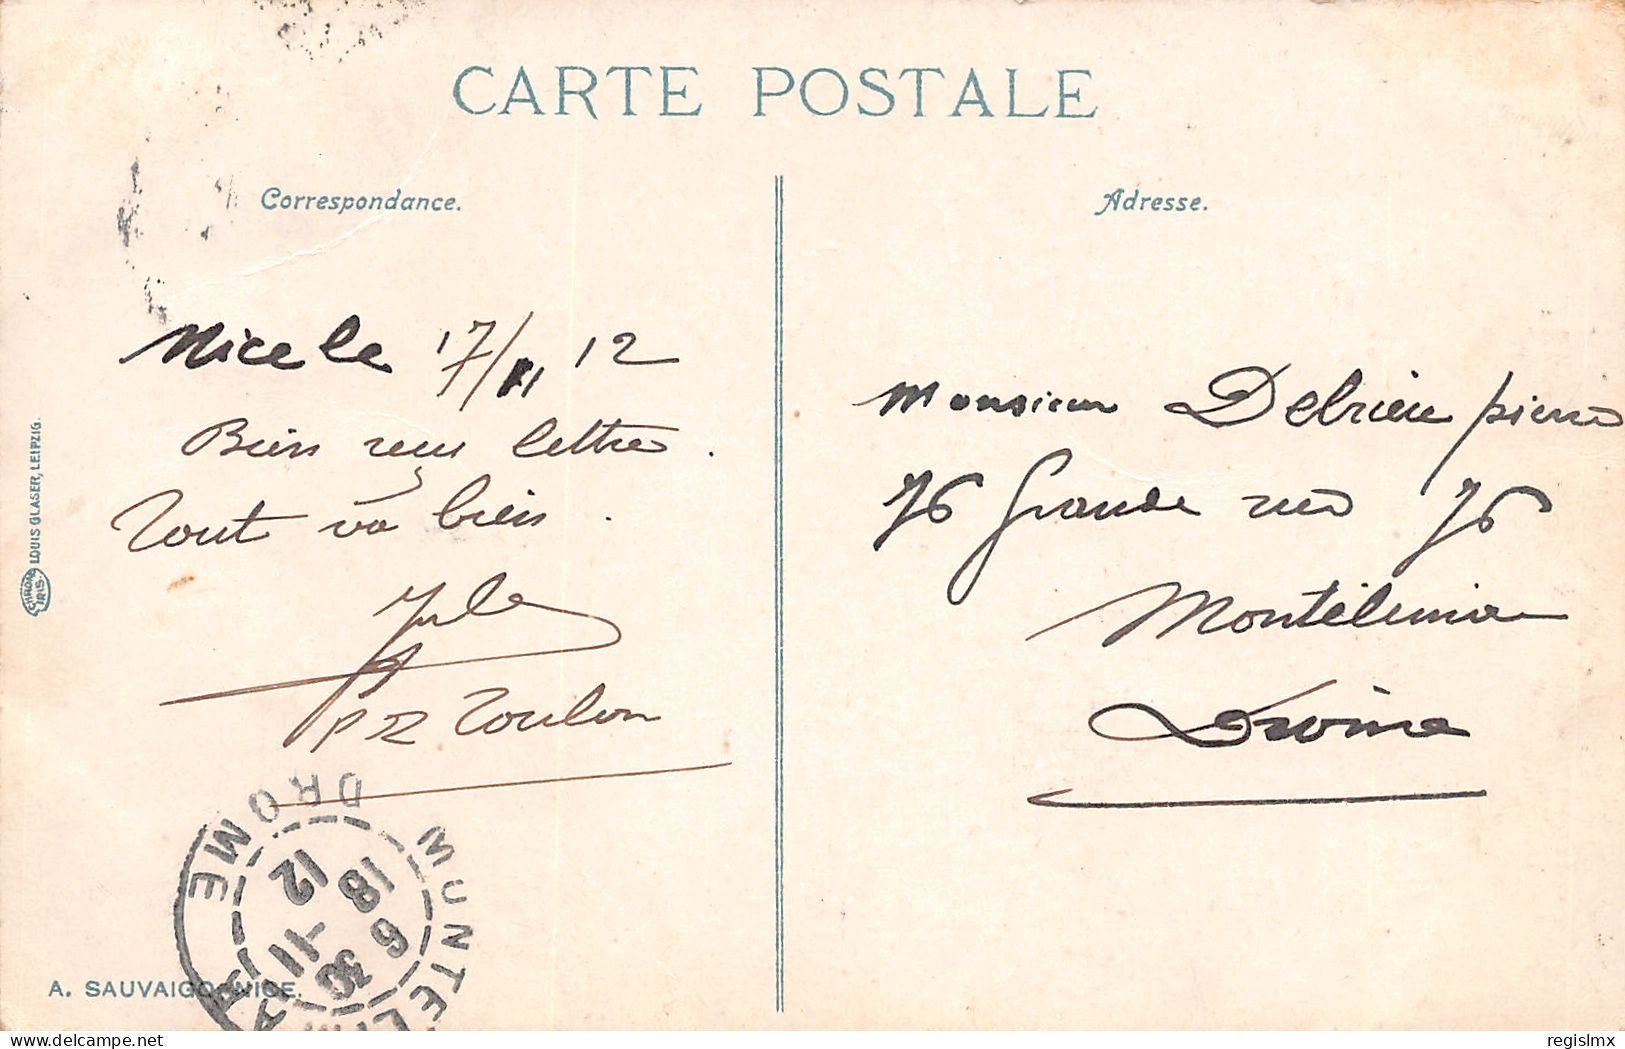 CARTE POSTALE
Correspondance.
Nice le 17/11 12
Bien reçu lettre.
Tout va bien.
Jules
Toulon
Adresse.
Monsieur Delrieu pierre
76 Grande rue 76
Montélimar
Drôme
CHROMO IRIS. LOUIS GLASER, LEIPZIG.
A. SAUVAIGO, NICE.
MONTELIMAR
DROME
6 30
18 -11
12
delcampe.net
regislmx